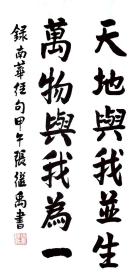 天地與我並生
萬物與我為一
録南華經句甲午張繼禹書